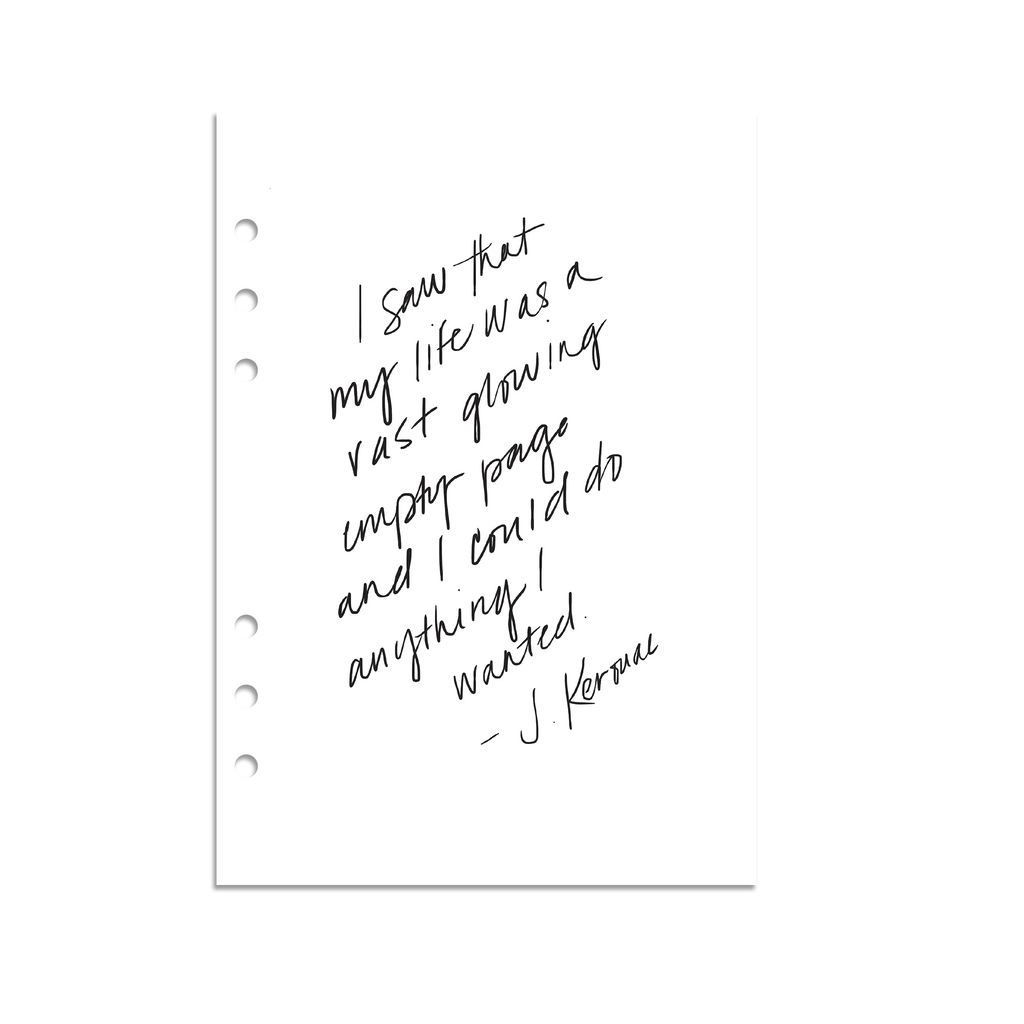 I saw that
my life was a
vast glowing
empty page
and I could do
anything I
wanted.
- J. Kerouac